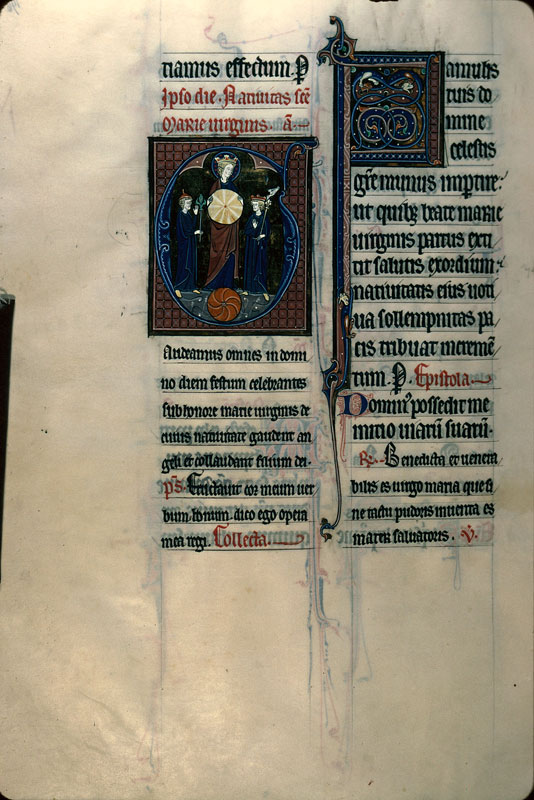 tiamus effectum. P
Ipso die. Natiuitas scē
Marie uirginis. ā.
Audeamus omnes in domi
no diem festum celebrantes
sub honore marie uirginis de
cuius natiuitate gaudent an
geli et collaudant filium dei.
ps. Eructauit cor meum uer
bum bonum. dico ego opera
mea regi. Collecta.
Famulis
tuis do
mine
celestis
gr̄e munus imptire:
ut quibꝫ beate marie
uirginis partus exti
tit salutis exordium:
natiuitatis eius uoti
ua sollempnitas pa
cis tribuat incremē
tum. P. Epistola.
Dominꝰ possedit me
initio uiarū suarū.
R. Benedicta et uenera
bilis es uirgo maria que si
ne tactu pudoris inuenta es
mater saluatoris. V.